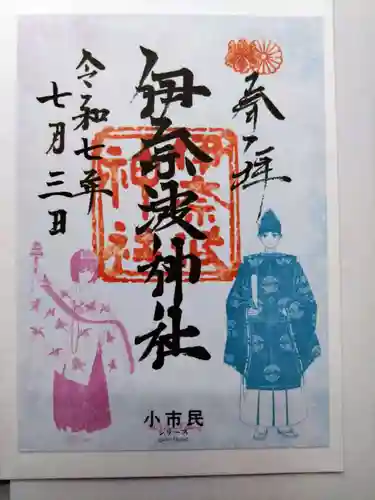 奉拝
伊奈波神社
令和七年
七月三日
伊奈波
神社
小市民
シリーズ